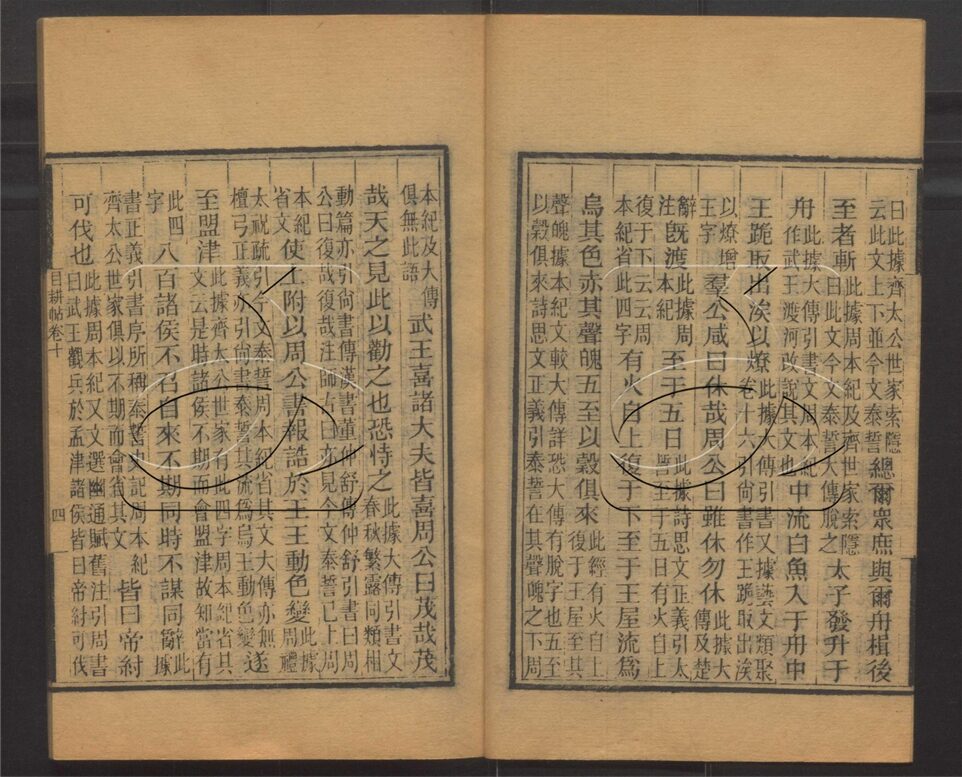 曰此據齊太公世家索隱
云此文上下並今文泰誓總爾眾庶與爾舟楫後
至者斬此據周本紀及齊世家索隱
曰此文今文泰誓大傳脫之太子發升于
舟此據大傳引書文周本紀
作武王渡河改說其文也中流白魚入于舟中
王跪取出涘以燎此據大傳引書又據藝文類聚
卷十六引尚書作王跪取出涘
以燎增
王字羣公咸曰休哉周公曰雖休勿休此據大
傳及楚
辭
注旣渡此據周
本紀至于五日此據詩思文正義引太
誓至于五日有火自上
復于下云云周
本紀省此四字有火自上復于下至于王屋流為
烏其色赤其聲魄五至以穀俱來此經有火自上
復于王屋至其
聲魄據本紀文較大傳詳恐大傳有脫字也五至
以穀俱來詩思文正義引泰誓在其聲魄之下周
本紀及大傳
俱無此語武王喜諸大夫皆喜周公曰茂哉茂
哉天之見此以勸之也恐恃之此據大傳引書文
春秋繁露同類相
動篇亦引尚書傳漢書董仲舒傳仲舒引書曰周
公曰復哉復哉注師古曰亦見今文泰誓已上周
本紀
省文使上附以周公書報誥於王王動色變此據
周禮
太祝疏引今文泰誓周本紀省其文大傳亦無
檀弓正義亦引尚書泰誓其流為烏王動色變遂
至盟津此據齊太公世家有此四字周本紀省其
文云是時諸侯不期而會盟津故知當有
此四
字八百諸侯不召自來不期同時不謀同辭此
據
書正義引書序所稱泰誓史記周本紀
齊太公世家俱以不期而會省其文皆曰帝紂
可伐也此據周本紀又文選幽通賦舊注引周書
曰武王觀兵於孟津諸侯皆曰帝紂可伐
目耕帖卷十
四